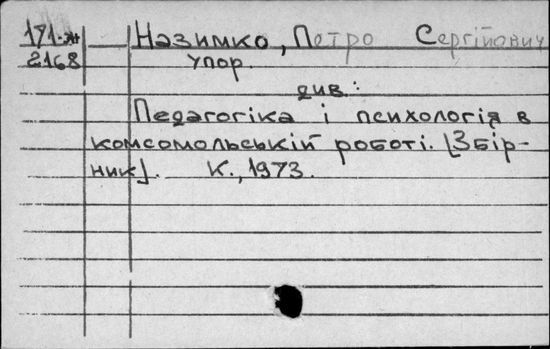 171-ж Назимко, Петро Сергійович
2168 упор.
див.:
Педагогіка і психологія в
комсомольській роботі. [Збір-
ник]. К., 1973.